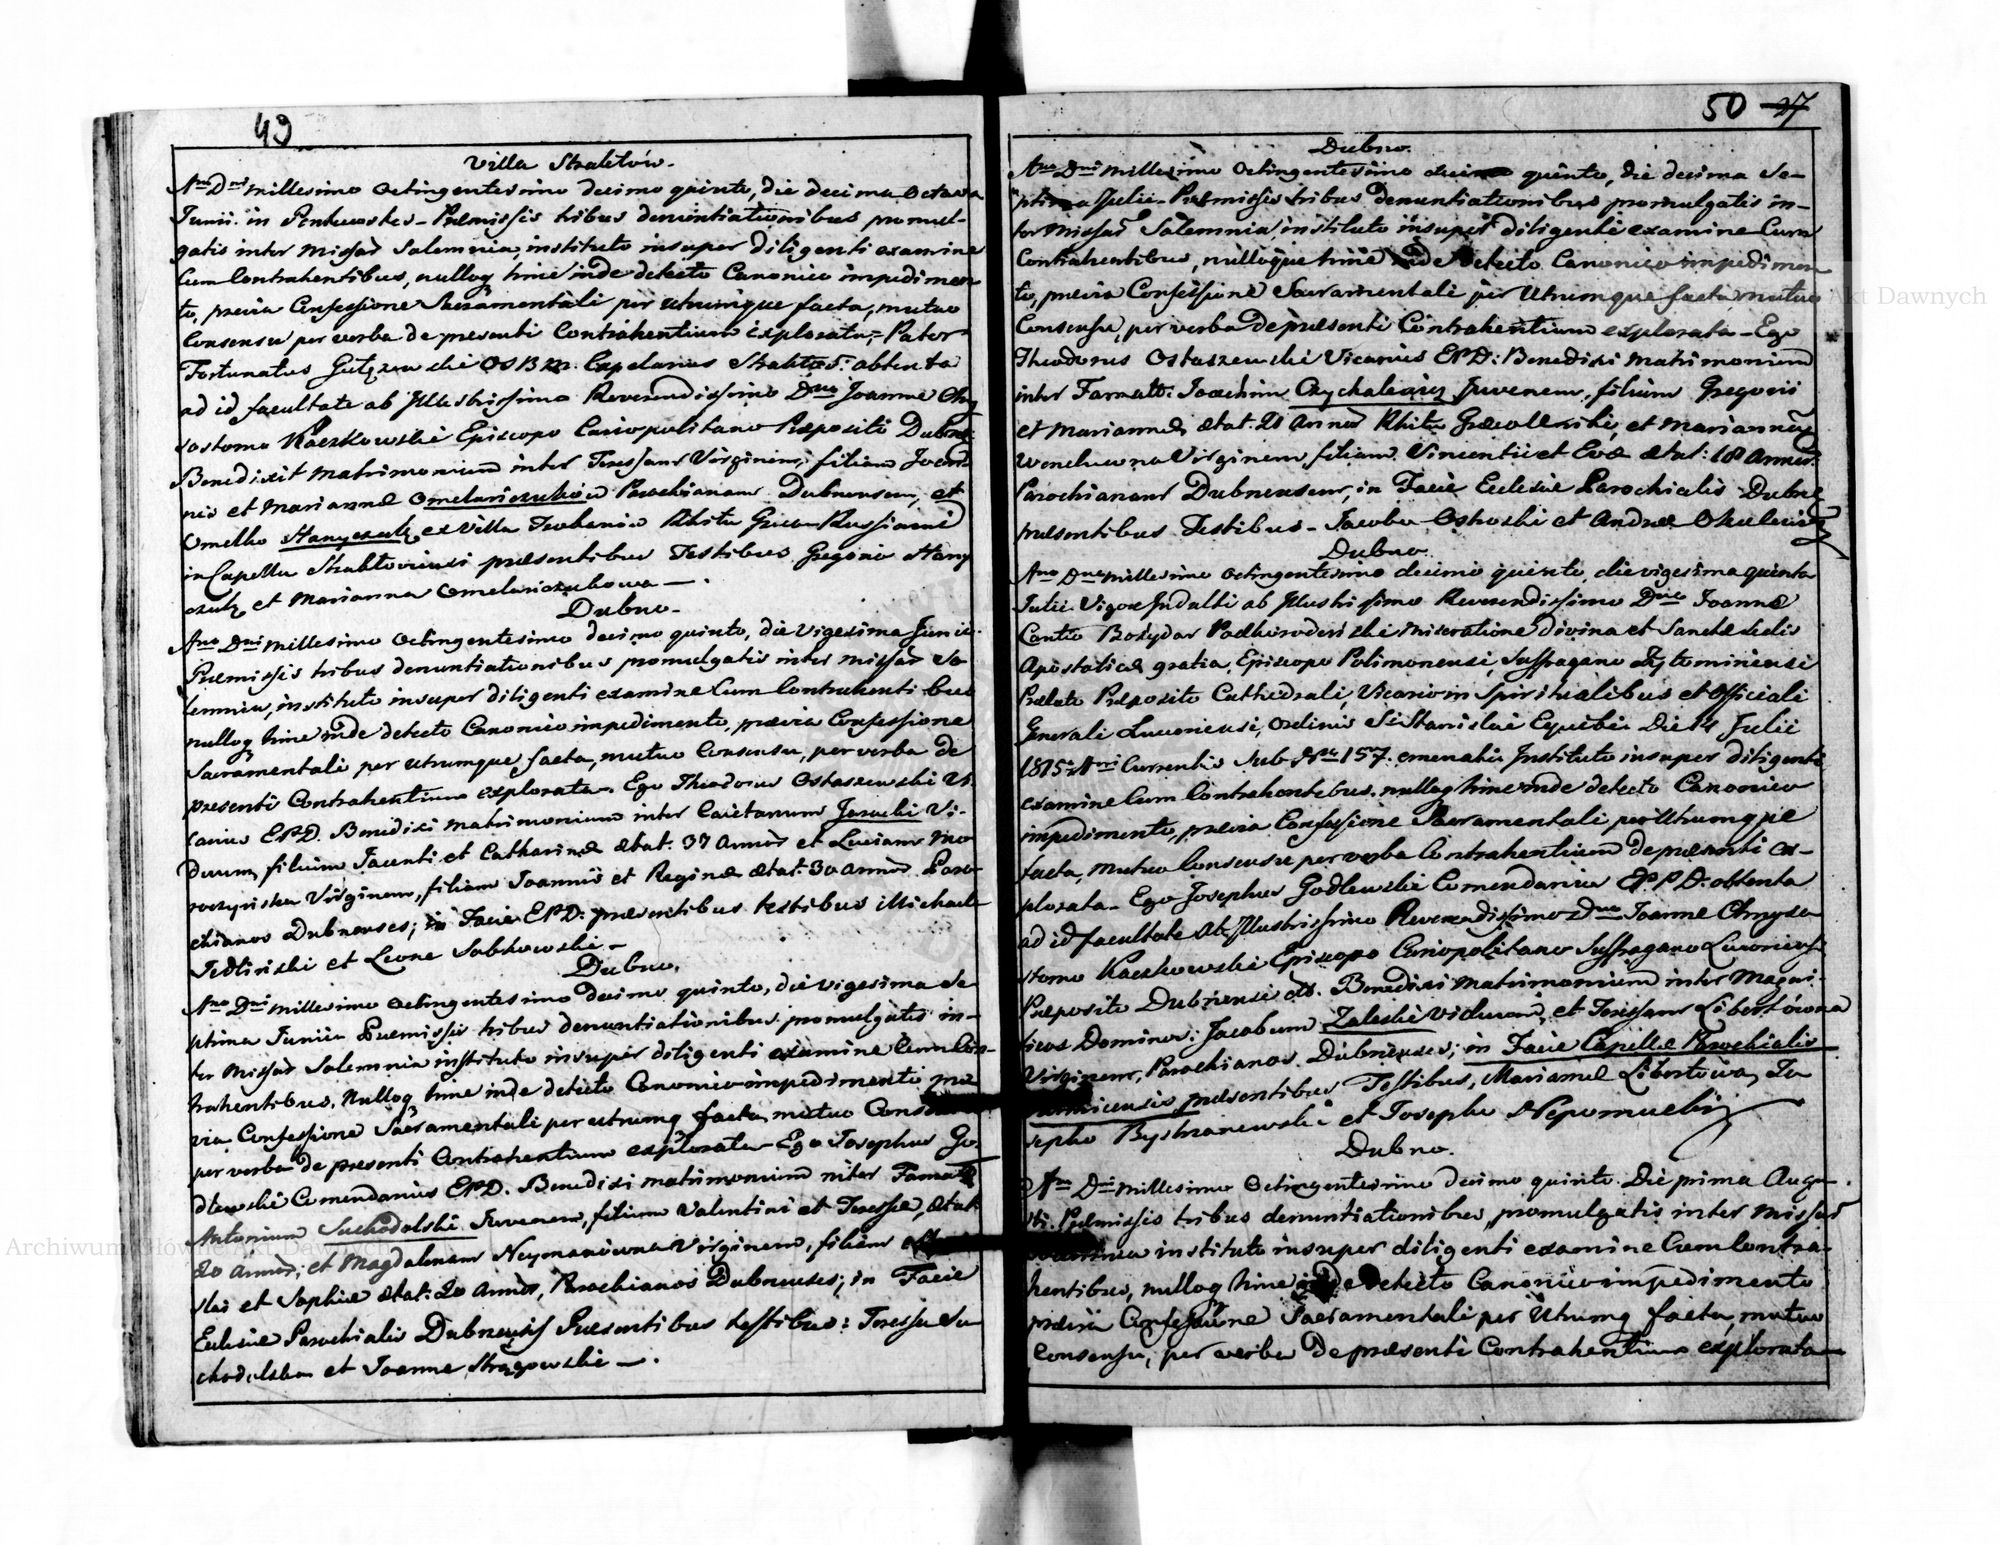 49
Villa Straklów.
Ano Dni Millesimo Octingentesimo decimo quinto, die decima Octava
Junii in Premissis tribus denuntiationibus promul-
gatis inter Missar Solemnia, instituto insuper diligenti examine
Cum Contrahentibus, nulloq hinc inde detecto Canonico impedimen
to, previa Confessione Sacramentali per utrumque facta, mutuo
Consensu per verba de presenti Contrahentium explorato, Pater
Fortunatus OSBM. Capelanus obtenta
ad id facultate ab Illustrissimo Reverendissimo Dno Joanne Chry
sostomo Kaczkowski Episcopo Cariopolitano Præposito Dubne:
Benedixit matrimonium inter Teressam Virginem, filiam Joan
nis et Mariannæ Omelaniczukow Parochianam Dubnensem, et
Omelko Hanyczuk, ex Villa Ritu Græco Russiano
in Capella Straktoviensi præsentibus Testibus Gregorio Hany
czuk, et Marianna Omelaniczukowa — .
Dubno.
Ano Dni Millesimo Octingentesimo decimo quinto, die Vigesima Junii.
Præmissis tribus denuntiationibus promulgatis inter Missar So
lemnia, instituto insuper diligenti examine Cum Contrahentibus
nulloq hinc inde detecto Canonico impedimento, previa Confessione
Sacramentali per utrumque facta, mutuo Consensu, per verba de
presenti Contrahentium explorato, Ego Theodorus Ostaszewski Vi
carius EPD. Benedixi matrimonium inter Caietanum Jasucki Vi-
duum, filium Jacenti et Catharinæ ætat: 37 annor et Lucianr Mo
roczyńska Virginem, filiam Joannis et Reginæ ætat: 30 annor Paro-
chianos Dubnenses; in Facie EPD: præsentibus testibus Michaele
Jedliński et Leone Sabkowski —
Dubno.
Ano Dni Millesimo Octingentesimo Decimo quinto, die vigesima Se
ptima Junii Præmissis tribus denuntiationibus promulgatis in-
ter Missar Solemnia instituto insuper diligenti examine Cum Con-
trahentibus, Nulloq hinc inde detecto Canonico impedimento, præ
via Confessione Sacramentali per utrumq facta, mutuo Consensu
per verba de presenti Contrahentium explorato — Ego Josephus Go-
dlewski Comendarius EPD. Benedixi matrimonium inter Famat
Antonium Suchodolski Juvenem, filium Valentini et Teressæ, ætat:
20 annor; et Magdalenam Neymanówna Virginem, filiam
et Sophiæ ætat: 20 annor, Parochianos Dubnenses; in Facie
Eclesiæ Parochialis Dubnensis Præsentibus testibus: Teressa Su
chodolska et Joanne — .
50 27
Dubno.
Ano Dni Millesimo Octingentesimo decimo quinto, die decima Se-
ptima Julii Præmissis tribus denuntiationibus promulgatis in-
ter Missar Solemnia instituto insuper diligenti examine Cum
Contrahentibus, nulloque hinc inde detecto Canonico impedimen
to, prævia Confessione Sacramentali per Utrumque facta mutuo
Consensu, per verba De præsenti Contrahentium explorata — Ego
Theodorus Ostaszewski Vicarius EPD: Benedixi Matrimonium
inter Famatt: Joachim Juvenem, filium Gregorii
et Mariannæ ætat: 21 annor Rhitu et Mariannam
Virginem filiam Vincentii et Evæ ætat: 18 annor:
Parochianam Dubnensem, in Facie Eclesiæ Parochialis Dubne
præsentibus Testibus — Jacobo Ostroski et Andrea
Dubno
Ano Dno Millesimo Octingentesimo decimo quinto, die vigesima quinta
Julii Vigore Indulti ab Illustrissimo Reverendissimo Dno Joanne
Cantio Bożydar Podhorodeński Miseratione Divina et Sanctæ Sedis
Apostolicæ gratia, Episcopo Polimonensi, Suffragano Żytominiensi
Prælato Præposito Cathedrali, Vicario in Spiritualibus et Officiali
Generali Luceoriensi, Ordinis Sti Stanislai Equibi Die 14 Julii
1815 Anni Currentis Sub Nro 157. emenatis Instituto insuper diligenti
examine Cum Contrahentibus, nulloq hinc inde detecto Canonico
impedimento, prævia Confessione Sacramentali per Utrumque
facta, mutuo Consensu per verba Contrahentium de præsenti ex-
plorata — Ego Josephus Godlewski Comendarius EPPD: obtenta
ad id facultate ab Illustrissimo Reverendissimo Dno Joanne Chryso
stomo Kaczkowski Episcopo Cariopolitano Suffragano Luceoriensi
Præposito Dubnensi Benedixi Matrimonium inter Magni-
ficos Dominos: Jacobum Zaleski viduum, et Teressam Libertówna
Virginem, Parochianos Dubnenses; in Facie Capellæ Parochialis
præsentibus Testibus, Mariannæ Libertowa, Jo
sepho Bystranowski et Josepho Nepomucki
Dubno.
Ano Dni Millesimo Octingentesimo decimo quinto Die prima Augu-
sti. Præmissis tribus denuntiationibus promulgatis inter Missar
Solemnia instituto insuper diligenti examine Cum Contra-
hentibus, nulloq hinc inde detecto Canonico impedimento
prævia Confessione Sacramentali per Utrumq facta, mutuo
Consensu, per verba De præsenti Contrahentium explorata —
Archiwum Główne Akt Dawnych
Akt Dawnych